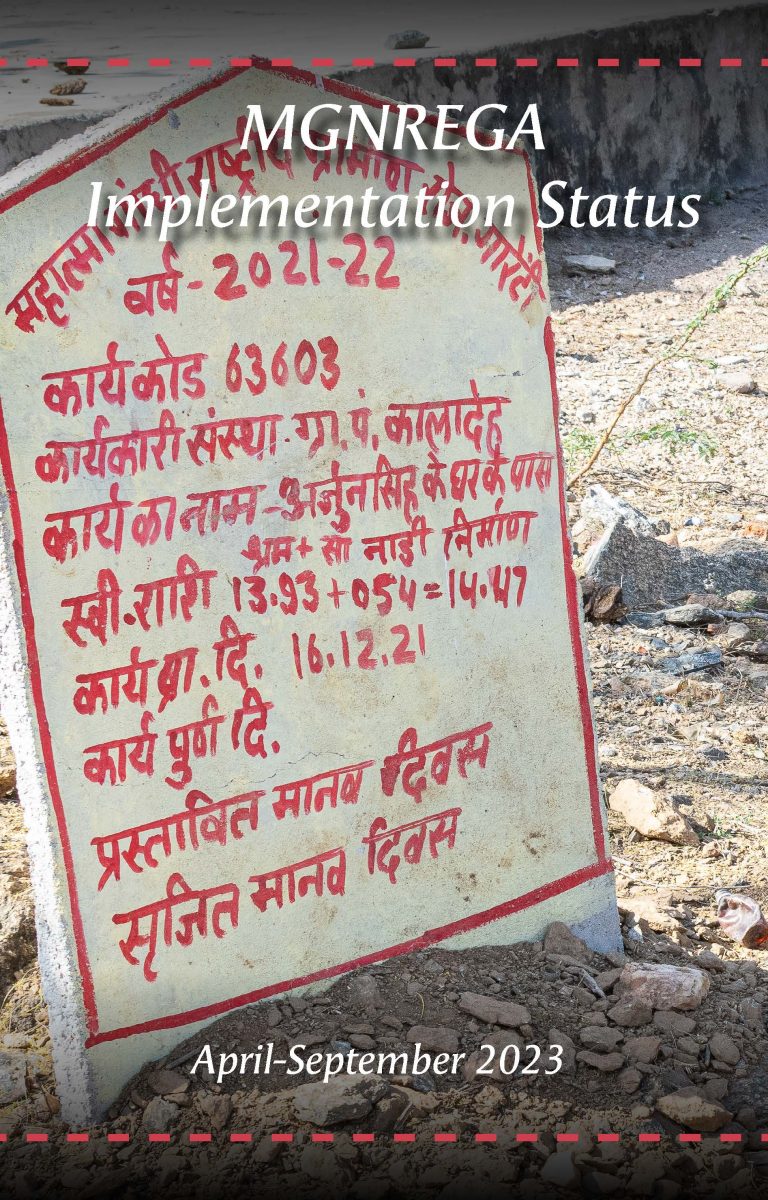 MGNREGA
Implementation Status
महात्मा गांधी राष्ट्रीय ग्रामीण गारंटी
वर्ष - 2021-22
कार्य कोड 63603
कार्यकारी संस्था - ग्रा. पं. कालादेह
कार्य का नाम - अर्जुनसिंह के घर के पास
श्रम + सा नाडी निर्माण
स्वी. राशि 13.93 + 054 = 14.47
कार्य प्रा. दि. 16.12.21
कार्य पुर्ण दि.
प्रस्तावित मानव दिवस
सृजित मानव दिवस
April-September 2023